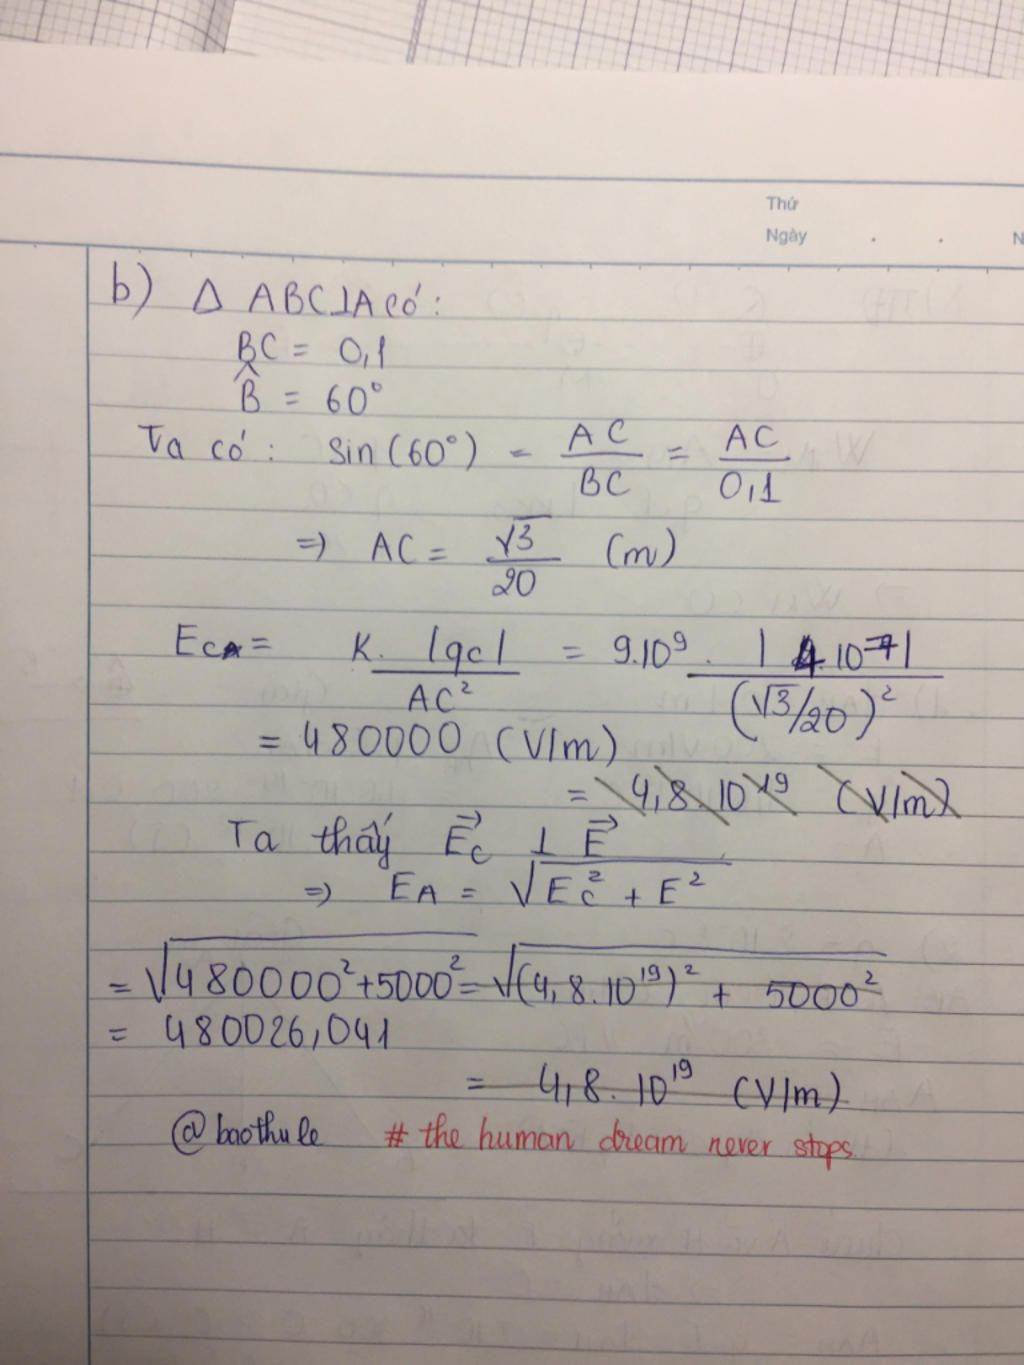 Thứ
Ngày . . N
b) Δ ABC⊥A có:
BC = 0,1
B̂ = 60°
Ta có: sin(60°) = AC/BC = AC/0,1
=> AC = √3/20 (m)
E_CA = K.|qc|/AC² = 9.10⁹. |4.10⁻⁷|/(√3/20)²
= 480000 (V/m)
= 4,8.10¹⁹ (V/m)
Ta thấy E⃗_C ⊥ E⃗
=> E_A = √(E_C² + E²)
= √(480000² + 5000²) = √((4,8.10¹⁹)² + 5000²)
= 480026,041
= 4,8.10¹⁹ (V/m)
@baothule # the human dream never stops